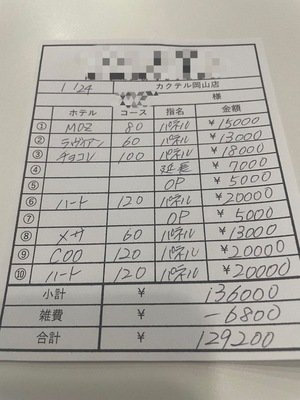 1/24 カクテル岡山店
様
ホテル コース 指名 金額
① MOZ 80 パネル ¥15000
② ラヴィアン 60 パネル ¥13000
③ チョコレ 100 パネル ¥18000
④ 延長 ¥7000
⑤ OP ¥5000
⑥ ハート 120 パネル ¥20000
⑦ OP ¥5000
⑧ メサ 60 パネル ¥13000
⑨ COO 120 パネル ¥20000
⑩ ハート 120 パネル ¥20000
小計 ¥ 136000
雑費 ¥ -6800
合計 ¥ 129200